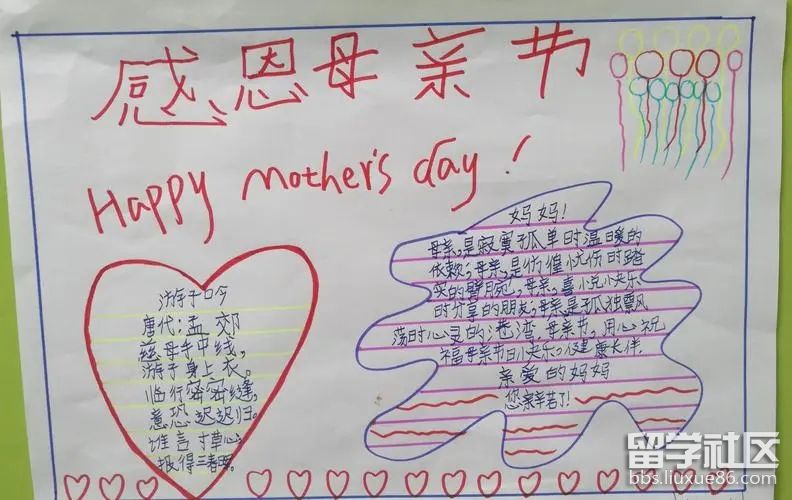 感恩母亲节
Happy mother's day!
游子吟
唐代:孟郊
慈母手中线,
游子身上衣。
临行密密缝,
意恐迟迟归。
谁言寸草心,
报得三春晖。
妈妈!
母亲,是寂寞孤单时温暖的
依赖,母亲,是伤惶忧伤时踏
实的臂腕,母亲,喜悦快乐
时分享的朋友,母亲是孤独飘风
荡时心灵的港湾,母亲节,用心祝
福母亲节日快乐。健康长伴.
亲爱的妈妈
您辛苦了!
留学社区
bbs.liuxue86.com